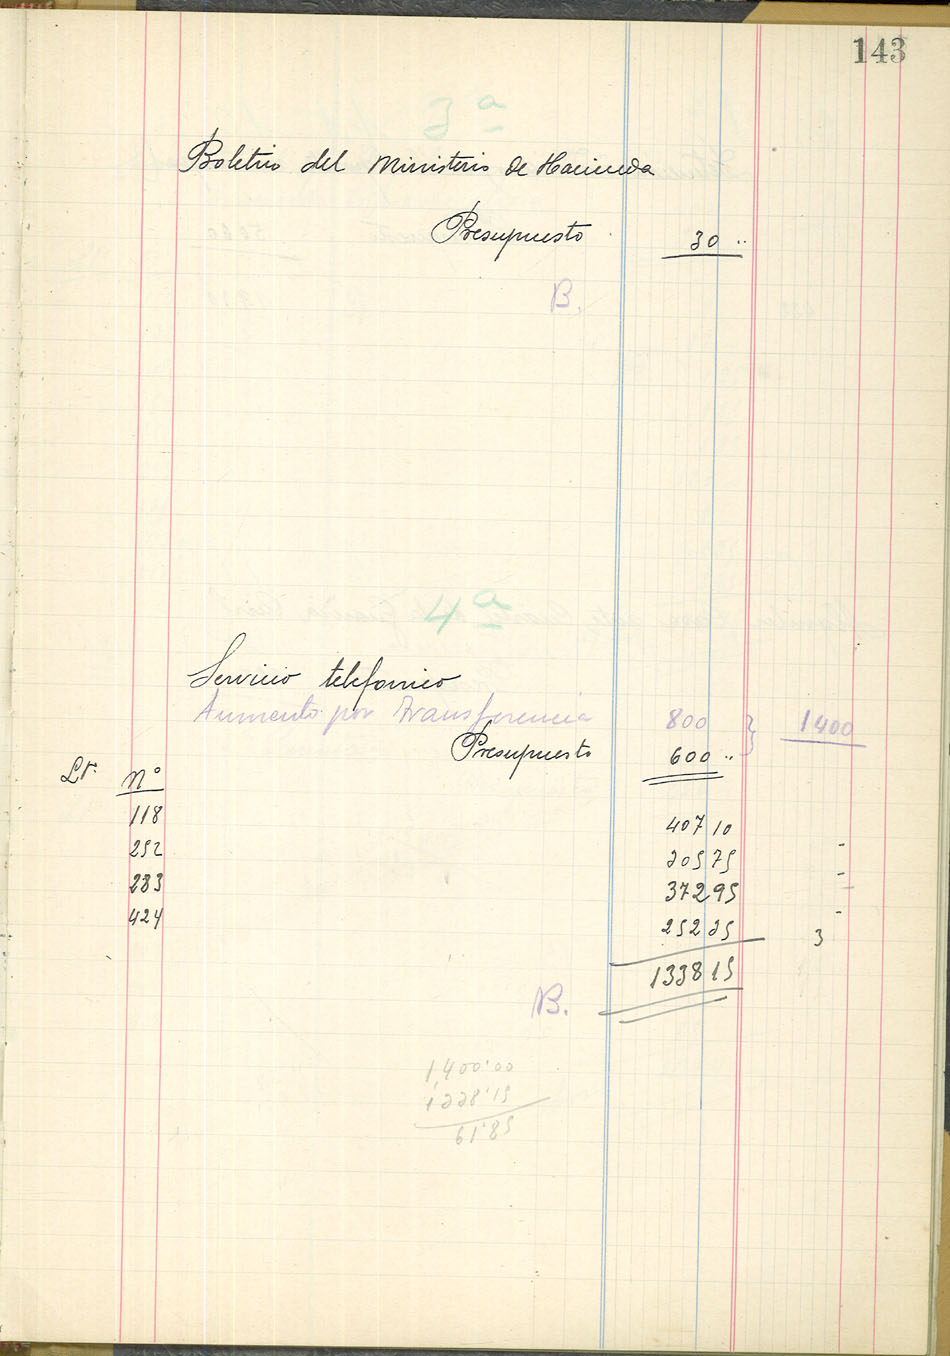 143
3ª
Boletin del Ministerio de Hacienda
Presupuesto 30 ..
B.
4ª
Servicio telefonico
Aumento por transferencia 800 } 1400
Presupuesto 600 ..
Nº
118 407 10
252 205 75
283 372 95
424 252 25 3
1338 15
B.
1400'00
1338'15
61'85